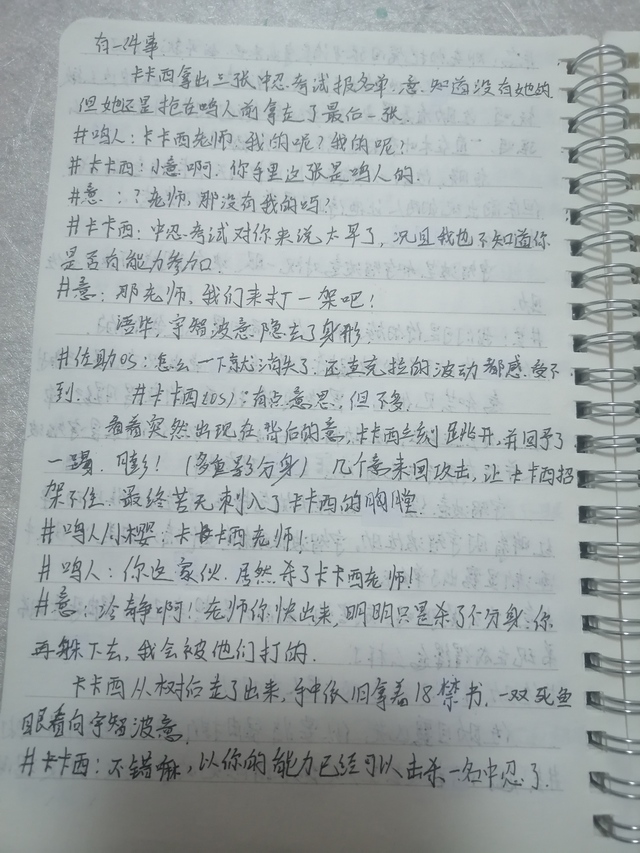 有一件事
卡卡西拿出三张中忍考试报名单,意.知道没有她的,
但她还是抢在鸣人前拿走了最后一张.
#鸣人:卡卡西老师,我的呢?我的呢?
#卡卡西:小意啊.你手里这张是鸣人的.
#意::?老师,那没有我的吗?
#卡卡西:中忍考试对你来说太早了,况且我也不知道你
是否有能力参加.
#意:那老师,我们来打一架吧!
语毕,宇智波意隐去了身形
#佐助OS:怎么一下就消失了.还连克拉的波动都感受不
到. #卡卡西(OS):有点意思,但不多.
看着突然出现在背后的意,卡卡西立刻避开,并回予了
一踢.嘭!(多重影分身)几个意来回攻击,让卡卡西招
架不住.最终苦无刺入了卡卡西的胸膛.
#鸣人/小樱:卡卡西老师!
#鸣人:你这家伙.居然杀了卡卡西老师!
#意:冷静啊!老师你快出来,明明只是杀了个分身:你
再躲下去,我会被他们打的.
卡卡西从树后走了出来,手中依旧拿着18禁书.一双死鱼
眼看向宇智波意,
#卡卡西:不错嘛,以你的能力已经可以击杀一名中忍了.